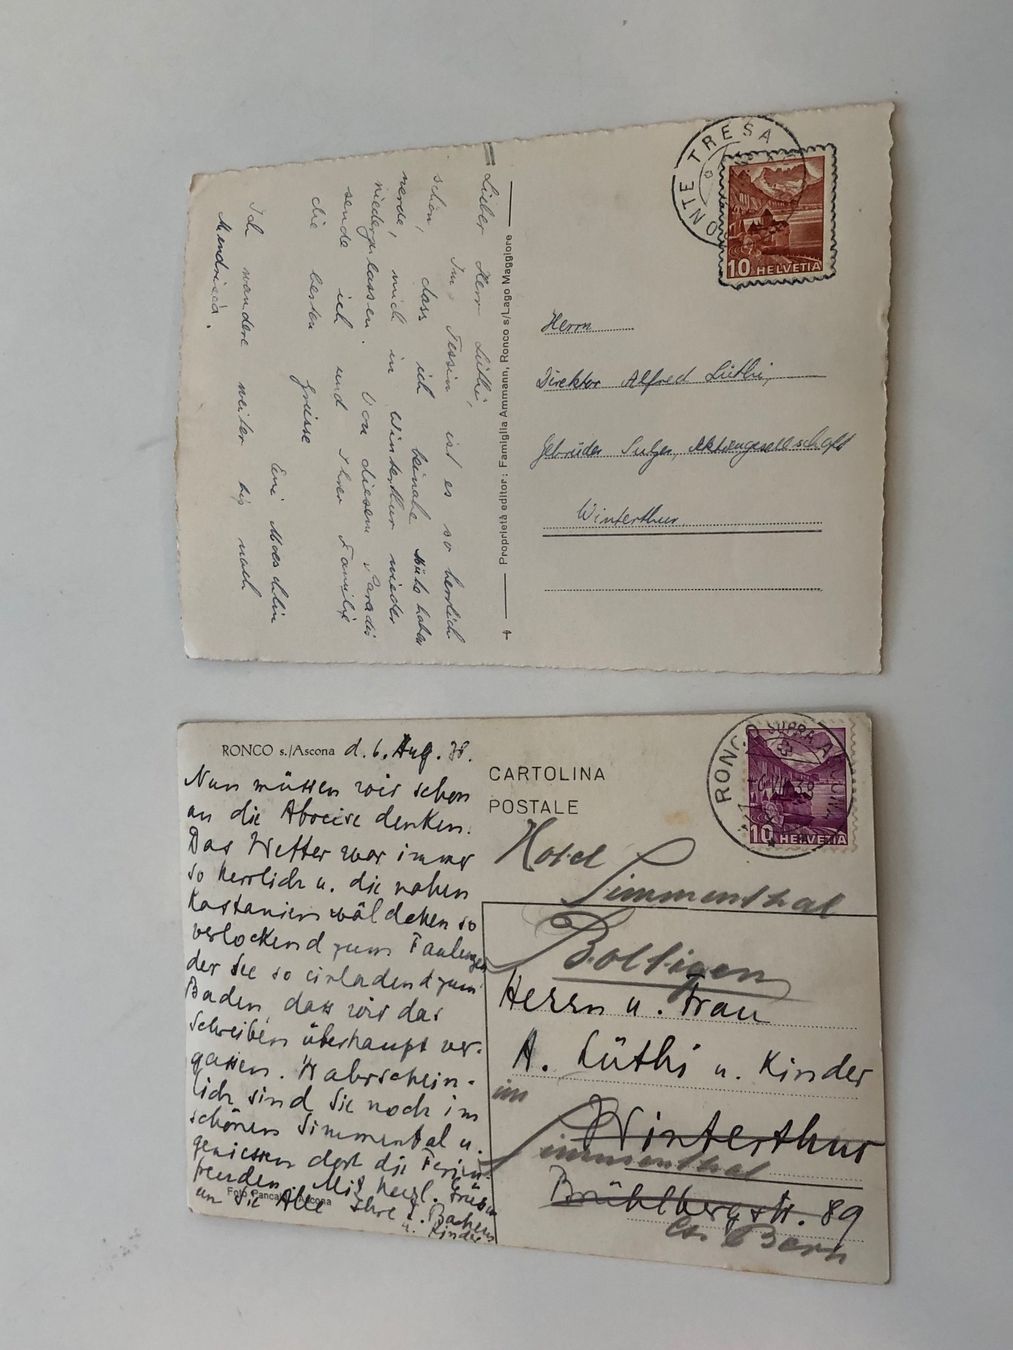 PONTE TRESA
10 HELVETIA
Lieber Herr Lüthi,
Im Tessin ist es so herrlich
schön, dass ich beinahe Mühe haben
werde, mich in Winterthur wieder
niederzulassen. Von diesem Paradis
sende ich und Ihrer Familie
die besten Grüsse
Ich wandere weiter bis nach
Mendrisio.
Proprietà editor: Famiglia Ammann, Ronco s/Lago Maggiore
Herrn
Direktor Alfred Lüthi,
Gebrüder Sulzer, Aktiengesellschaft
Winterthur
RONCO s./Ascona d. 6. Aug. 38.
Nun müssen wir schon
an die Abreise denken.
Das Wetter war immer
so herrlich u. die nahen
Kastanienwäldchen so
verlockend zum Faulenzen
der See so einladend zum
Baden, dass wir das
Schreiben überhaupt ver-
gassen. Wahrschein-
lich sind Sie noch im
schönen Simmental u.
geniessen dort die Ferien-
freuden. Mit herzl. Grüssen
an Sie Alle Ihre
u. Kinder
Ascona
CARTOLINA
POSTALE
RONCO SUPRA ASCONA
10 HELVETIA
Hotel
Simmenthal
Boltigen
Herrn u. Frau
A. Lüthi u. Kinder
im
Winterthur
Simmenthal
Brühlbergstr. 89
Bern